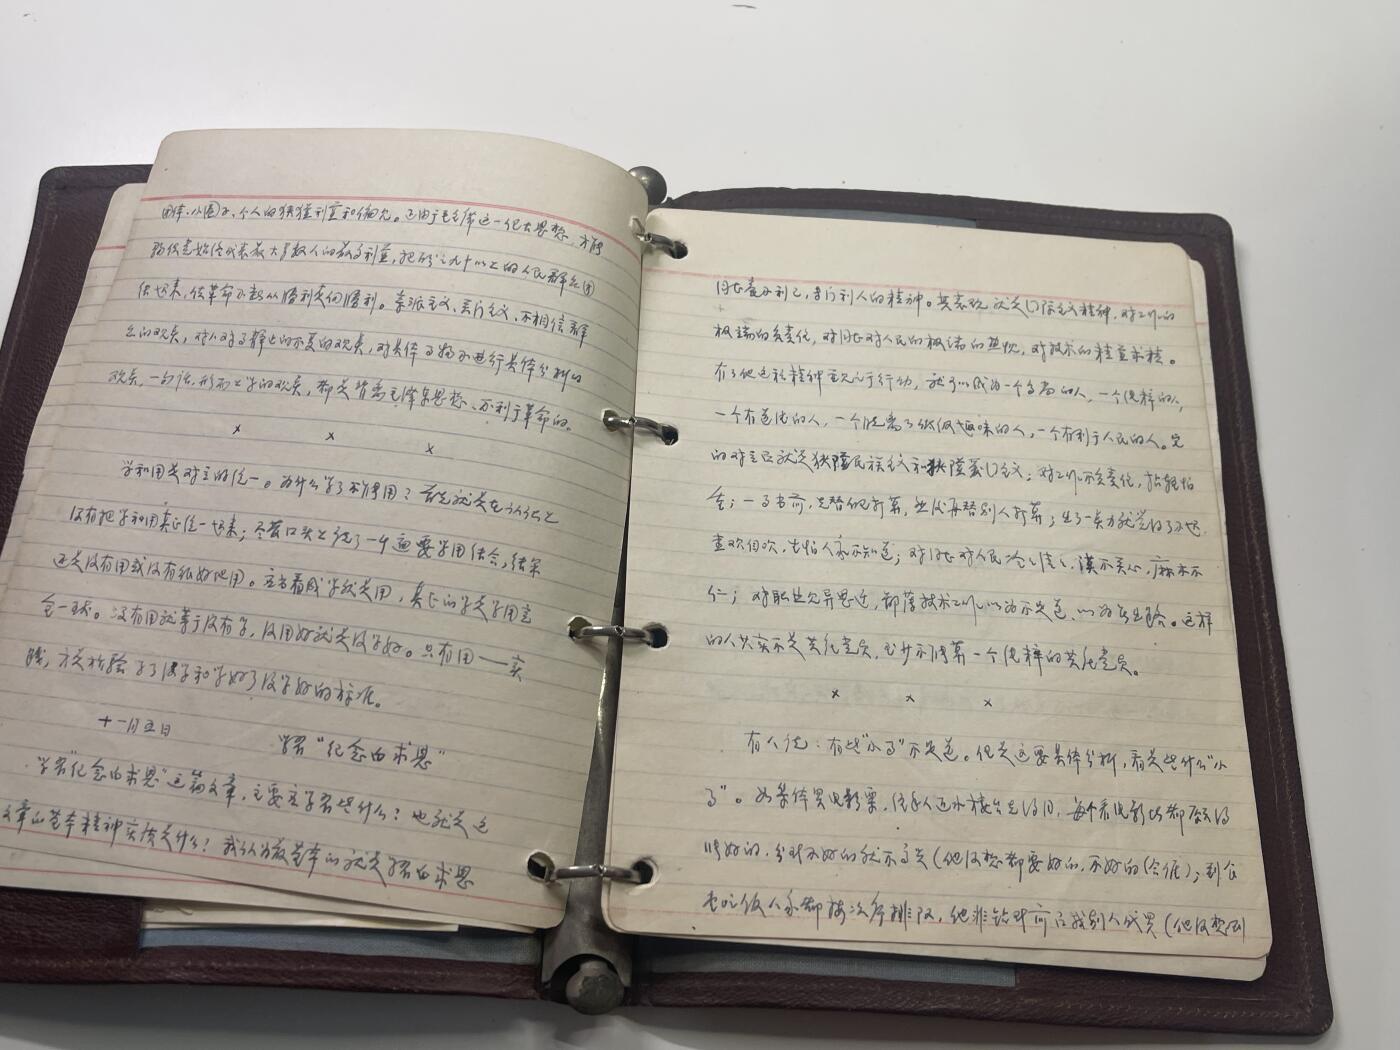 团体、小圈子、个人的狭隘利益和偏见。正由于毛主席这一伟大思想，才能
够代表始终代表最大多数人的最高利益，把百分之九十以上的人民群众团
结起来，使革命不断从胜利走向胜利。宗派主义、关门主义、不相信群
众的观点，对人对事静止的不变的观点，对具体事物不进行具体分析的
观点，一句话，形而上学的观点，都是背离毛泽东思想、不利于革命的。
× × ×
学和用是对立的统一。为什么学了不能用？首先就是在认识上
没有把学和用真正统一起来；尽管口头上说了一千遍要学用结合，结果
还是没有用或没有很好地用。应当看成学就是用，真正的学是学用完
全一致。没有用就等于没有学，没用好就是没学好。只有用——实
践，才是检验学了没学和学好了没学好的标准。
十一月五日
学习“纪念白求恩”
学习“纪念白求恩”这篇文章，主要应学习些什么？也就是这
文章的基本精神实质是什么？我认为最基本的就是学习白求恩
同志毫不利己，专门利人的精神。其表现就是国际主义精神，对工作的
极端的负责任，对同志对人民的极端的热忱，对技术的精益求精。
有了他这种精神并见之于行动，就可以成为一个高尚的人，一个纯粹的人，
一个有道德的人，一个脱离了低级趣味的人，一个有利于人民的人。它
的对立面就是狭隘民族主义和狭隘爱国主义；对工作不负责任，拈轻怕
重；一事当前，先替自己打算，然后再替别人打算；出了一点力就觉得了不起，
喜欢自吹，生怕人家不知道；对同志对人民冷冷清清，漠不关心，麻木不
仁；对职业见异思迁，鄙薄技术工作，以为不足道，以为无出路。这样
的人其实不是共产党员，至少不能算一个纯粹的共产党员。
× × ×
有人说：有些“小事”不足道。但是这要具体分析，看是些什么“小
事”。如集体买电影票，
好的，分到不好的就不高兴（他没想都要好的，不好的给谁）；到食
堂吃饭人家都按次序排队，他非钻到前面找别人代买（他没想到